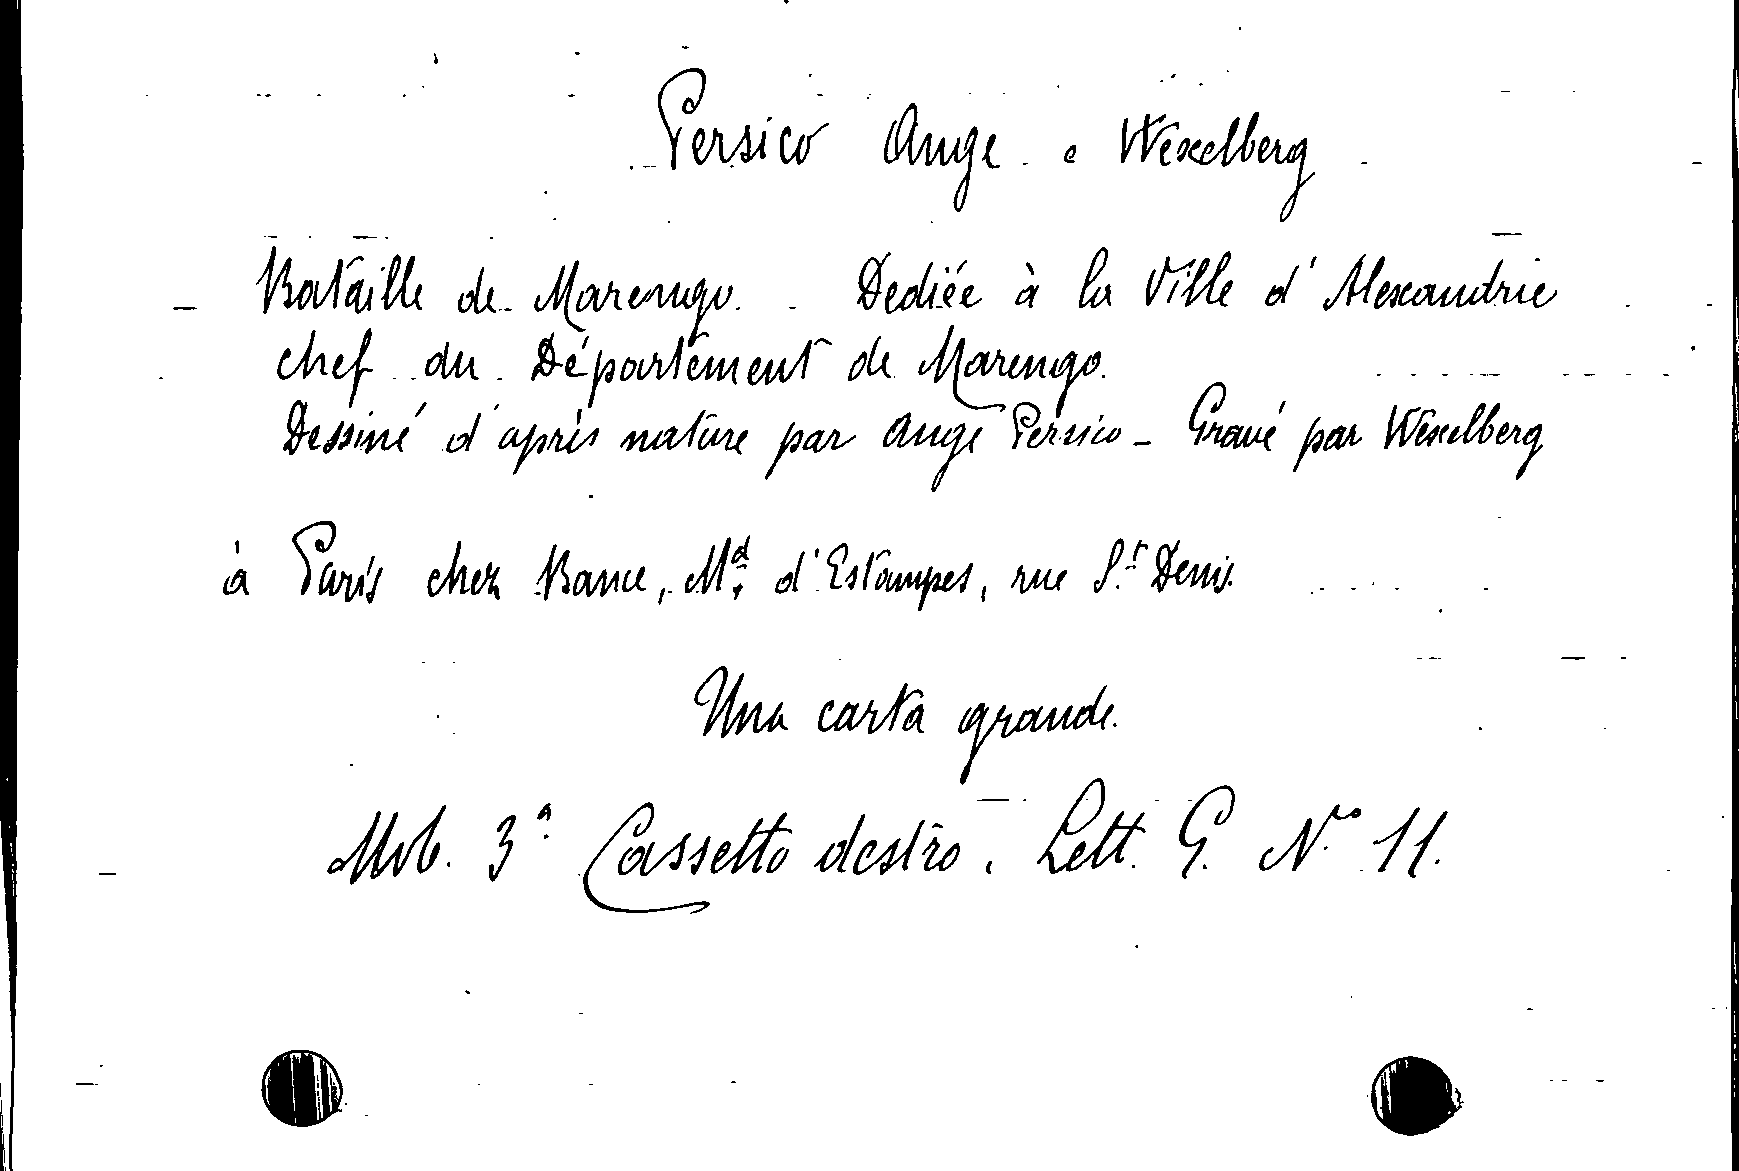 Persico Ange e Wexelberg
Bataille de Marengo. Dediée à la Ville d'Alexandrie
chef du Département de Marengo.
Dessiné d'après nature par Ange Persico - Gravé par Wexelberg
à Paris chez Bance, Md. d'Estampes, rue St. Denis.
Una carta grande.
Mob. 3ª Cassetto destro. Lett. G. N° 11.